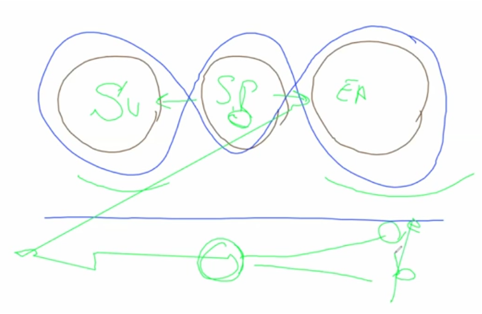 Su SP EA